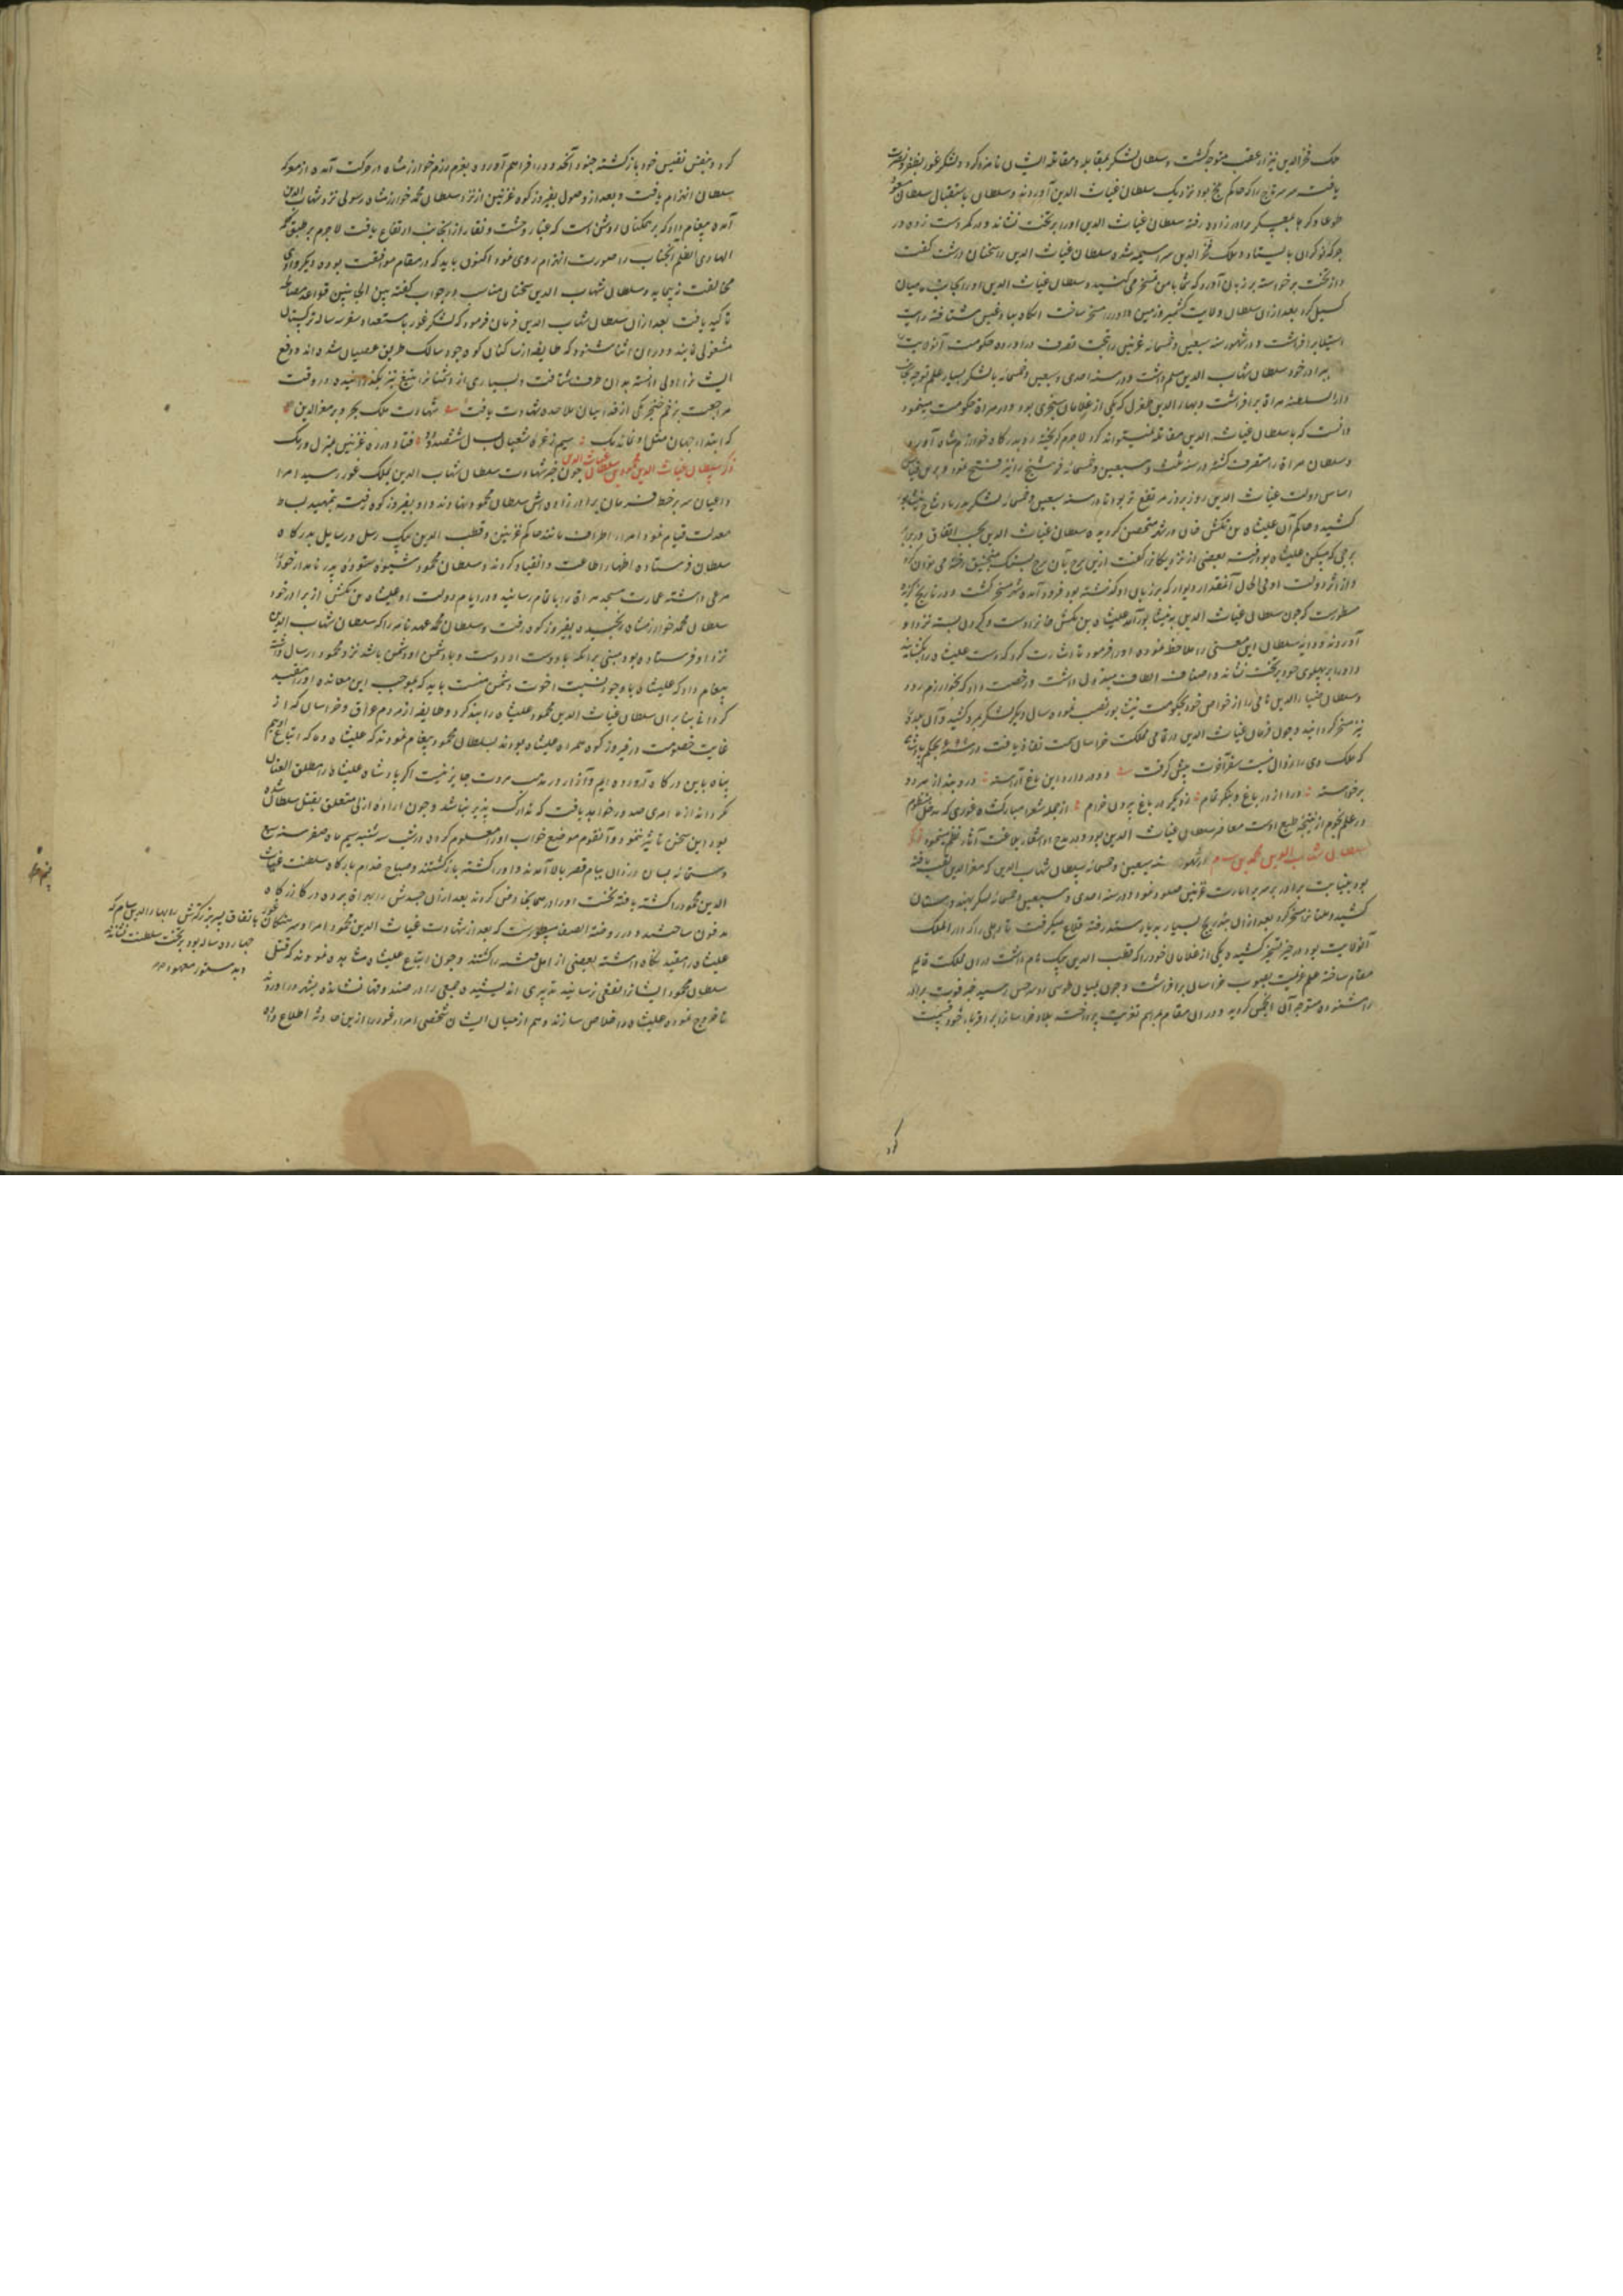 ملک فخر الدین نیز از عقب متوجه گشت و سلطان لشکر بمقابله و مقاتله ایشان نامزد کرد و لشکر غور بظفر و نصرت
یافت سر تاج را که حاکم بلخ بود نزدیک سلطان غیاث الدین آوردند و سلطان باستقبال سلطان مسعود
طوعا و کرها بمعسکر برادرزاده رفته سلطان غیاث الدین او را بر تخت نشاند و در کمر دست زده در
جرکه نوکران بایستاد و ملک فخر الدین سراسیمه شده سلطان غیاث الدین را سخنان درشت گفت
و از تخت برخواسته بر زبان آورد که شما با من تمسخر می کنید و سلطان غیاث الدین او را بجانب بامیان
گسیل کرد بعد ازان سلطان ولایت و زمین داور را مسخر ساخت آنگاه ببادغیس شتافته رایت
استیلا برافراشت و در شهور سنه سبعین و خمسمائه غزنین را تحت تصرف در آورده حکومت آن ولایت
ببرادر خود سلطان شهاب الدین مسلم داشت و در سنه احدی و سبعین و خمسمائه با لشکر بسیار علم توجه بجانب
دار السلطنه هراة برافراشت و بهاء الدین طغرل که یکی از غلامان سنجری بود و در هراة حکومت مینمود
دانست که با سلطان غیاث الدین مقاتله نمیتواند کرد لاجرم گریخته رو بدرگاه خوارزم شاه آورد
و سلطان هراة را متصرف گشته در سنه ثلث و سبعین و خمسمائه فوشنج را نیز فتح نمود و برین قیاس
اساس دولت غیاث الدین روز بروز مرتفع تر بود تا در سنه سبع و تسعین و خمسمائه لشکر بنیشابور
کشید و حاکم آن علیشاه بن تکش خان در شهر متحصن گردیده سلطان غیاث الدین بحسب اتفاق در برابر
برجی که مسکن علیشاه بود رفت بعضی از نزدیکانرا گفت ازین برج تا آن برج بسنگ منجنیق رخنه می توان کرد
و از اثر دولت او فی الحال آنمقدار دیوار که بر زبان او گذشته بود فرود آمده شهر مسخر گشت و در تاریخ گزیده
مسطورست که چون سلطان غیاث الدین به نیشابور آمد علیشاه بن تکش خانرا دست و گردن بسته نزد او
آوردند و دایه سلطان این معنی را ملاحظه نموده او را فرمود تا اشارت کرد که دست علیشاه را بگشایند
و او را بر پهلوی خود بر تخت نشانده اصناف الطاف مبذول داشت و رخصت داد که بخوارزم رود
و سلطان ضیاء الدین نامی را از خواص خود بحکومت نیشابور نصب نمود سال دیگر لشکر بمرو کشید و آن بلده
نیز مسخر گردانید و چون فرمان غیاث الدین در تمامی مملکت خراسان سمت نفاذ یافت
که ملک وی را زوال نیست سفر آخرت پیش گرفت دو در دارد این باغ آراسته در و بند از هر دو
برخواسته درا از در باغ و بنگر تمام ز دیگر در باغ بیرون خرام از جمله شعرا مبارکشاه غوری که مدخل منظوم
در علم نجوم از نتیجه طبع اوست معاصر سلطان غیاث الدین بود و در مدح او اشعار بلاغت آثار نظم مینمود ذکر
سلطان شهاب الدین محمد بن سام در شهور سنه سبعین و خمسمائه سلطان شهاب الدین که معز الدین لقب یافته
بود بنیابت برادر بر سریر امارت غزنین صعود نمود و در سنه احدی و سبعین و خمسمائه لشکر بهندوستان
کشید و ملتان را مسخر کرد بعد ازان بتدریج بسیار بدیار سند رفته قلاع میگرفت تا دهلی را که دار الملک
آنولایت بود در حیز تسخیر کشید و یکی از غلامان خود را که قطب الدین ایبک نام داشت دران مملکت قایم
مقام ساخته علم عزیمت بصوب خراسان برافراشت و چون میان طوس و سرخس رسید خبر فوت برادر
را شنیده متوجه آن گردید و دران مقام بمراسم تعزیت پرداخته بلاد خراسان را بر اقرباء خود قسمت
کرد و بنفس نفیس خود بازگشته جنود آنحدود را فراهم آورد و بعزم رزم خوارزمشاه در حرکت آمده از معرکه
سلطان انهزام یافت و بعد از وصول بفیروزکوه غزنین از نزد سلطان محمد خوارزمشاه رسولی نزد شهاب الدین
آمده پیغام داد که بر همکنان روشن است که غبار وحشت و نقار از آنجانب ارتفاع یافت لاجرم بر طبق کلمه
البادی اظلم آنجناب را صورت انهزام روی نمود اکنون باید که در مقام موافقت بوده دیگر وادی
مخالفت نپیماید و سلطان شهاب الدین سخنان مناسب در جواب گفته بین الجانبین قواعد مصالحه
تاکید یافت بعد ازان سلطان شهاب الدین فرمان فرمود که لشکر غور باستعداد سفر سه ساله ترکستان
مشغولی نمایند و دران اثنا شنود که طایفه از ساکنان کوه جود سالک طریق عصیان شده اند و دفع
ایشانرا اولی دانسته بدان طرف شتافت و بسیاری از دشمنان را بتیغ تیز بگذرانیده در وقت
مراجعت بزخم خنجر یکی از فدائیان ملاحده شهادت یافت شهادت ملک بحر و بر معز الدین
که ابتداء جهان مثل او نیامد یک سیم ز غره شعبان بسال ششصد و دو فتاد در ره غزنین بمنزل دمیک
ذکر سلطان غیاث الدین محمود بن سلطان غیاث الدین چون خبر شهادت سلطان شهاب الدین بملک غور رسید امرا
و اعیان سر بر خط فرمان برادرزاده اش سلطان محمود نهادند و او بفیروزکوه رفته بتمهید بساط
معدلت قیام نمود امراء اطراف مانند حاکم غزنین و قطب الدین ایبک رسل و رسایل بدرگاه
سلطان فرستاده اظهار اطاعت و انقیاد کردند و سلطان محمود شیوه ستوده پدر نامدار خود را
مرعی داشته عمارت مسجد هراة را باتمام رسانید و در ایام دولت او علیشاه بن تکش از برادر خود
سلطان محمد خوارزمشاه رنجیده بفیروزکوه رفت و سلطان محمد عهدنامه را که سلطان شهاب الدین
نزد او فرستاده بود مبنی بر آنکه با دوست او دوست و با دشمن او دشمن باشد نزد محمود ارسال داشته
پیغام داد که علیشاه با وجود نسبت اخوت دشمن منست باید که بموجب این معاهده او را مقید
گردانی بنابران سلطان غیاث الدین محمود علیشاه را بند کرد و طایفه از مردم عراق و خراسان که از
غایت خصومت در فیروزکوه همراه علیشاه بودند بسلطان محمود پیغام نمودند که علیشاه و ما که اتباع اوییم
پناه باین درگاه آورده ایم و آزار در مذهب مروت جایز نیست اگر پادشاه علیشاه را مطلق العنان
نگرداند از ما امری صدور خواهد یافت که تدارک پذیر نباشد و چون اراده ازلی متعلق بقتل سلطان شده
بود این سخن تاثیر ننمود و آنقوم موضع خواب او را معلوم کرده در شب سه شنبه سیم ماه صفر سنه سبع
و ستمائه بسان دزدان ببام قصر بالا آمدند و او را کشته بازگشتند و صباح خدام بارگاه سلطنت غیاث
الدین محمود را کشته یافته نخست او را در همانجا دفن کردند بعد ازان جسدش را بهراة برده در گازرگاه
مدفون ساختند و در روضة الصفا مسطورست که بعد از شهادت غیاث الدین محمود امرا و سرهنگان غور
علیشاه را مقید نگاه داشته بعضی از اهل فتنه را کشتند و چون اتباع علیشاه مشاهده نمودند که قتل
سلطان محمود ایشانرا نفعی نرسانید تدبیری اندیشیده جمعی را در صندوقها نشانده بشهر در آوردند
تا خروج نموده علیشاه را خلاص سازند و هم از میان ایشان شخصی امراء غور را ازین حادثه اطلاع داد
باتفاق پسر بزرگترش را بهاء الدین سام که
چهارده ساله بود بر تخت سلطنت نشاندند
و بدستور معهود